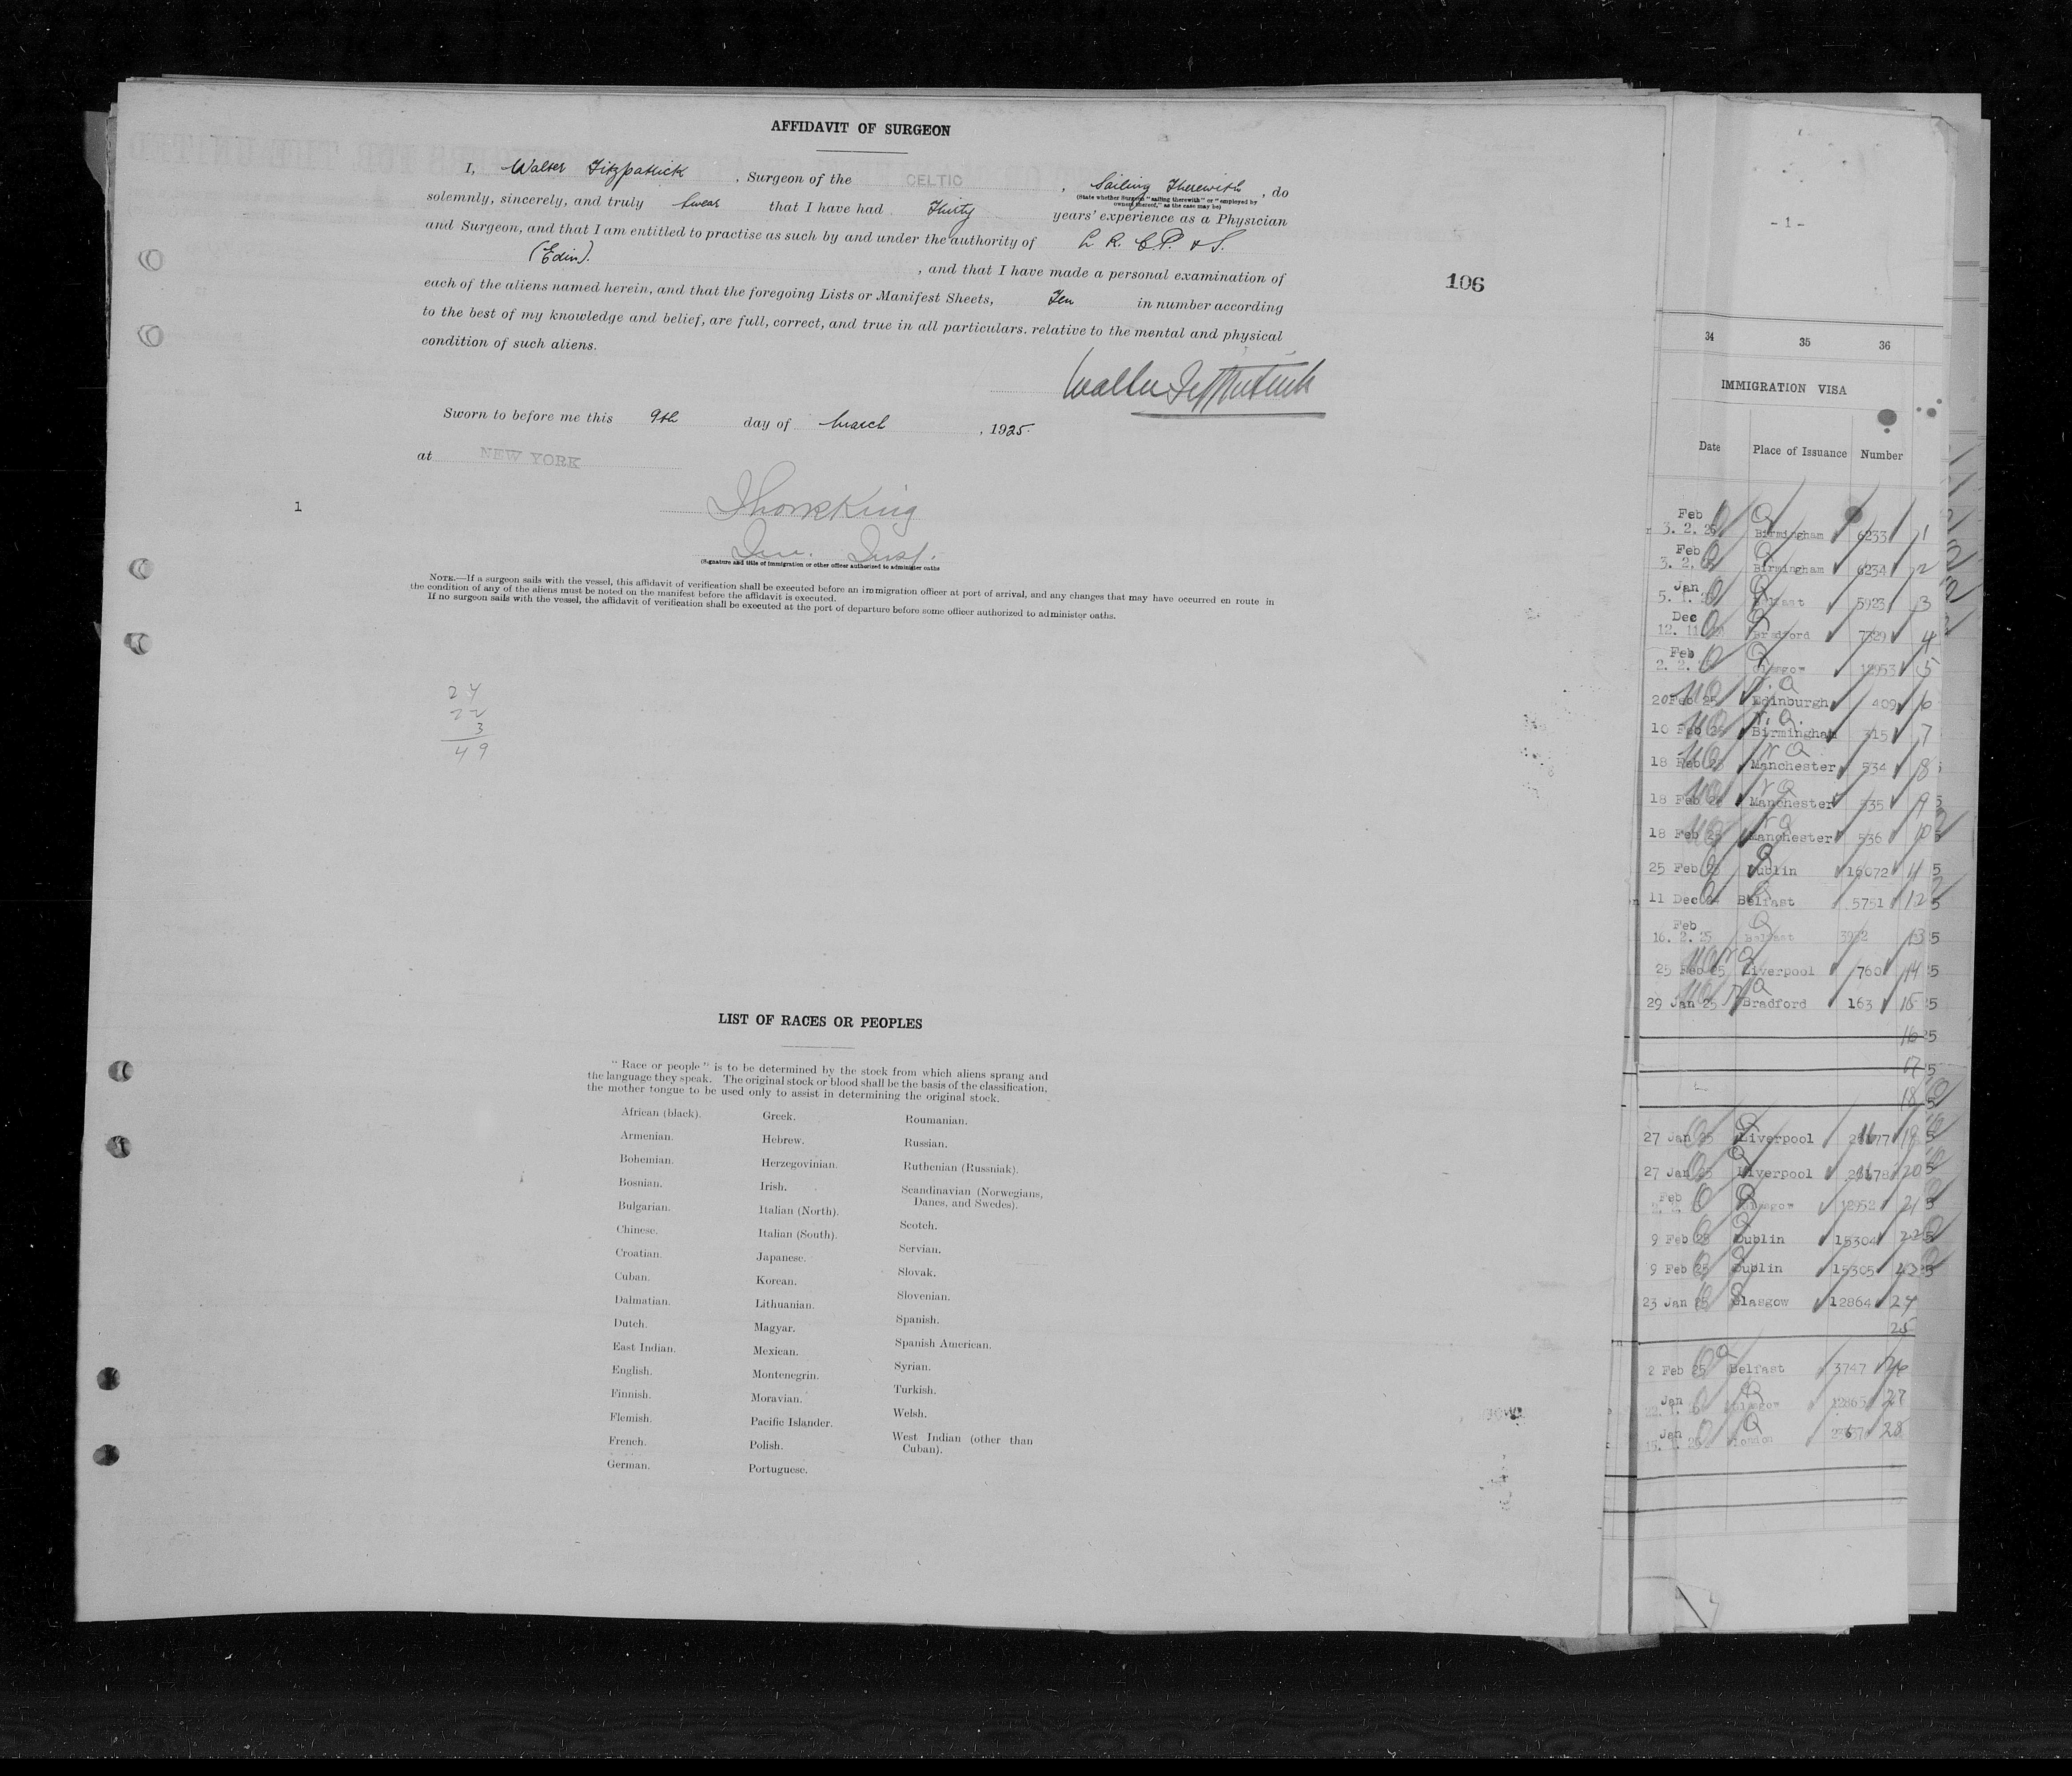 AFFIDAVIT OF SURGEON
I, Walter Fitzpatrick, Surgeon of the CELTIC, Sailing Therewith, do
(State whether Surgeon "sailing therewith" or "employed by owners thereof," as the case may be)
solemnly, sincerely, and truly Swear that I have had Thirty years' experience as a Physician
and Surgeon, and that I am entitled to practise as such by and under the authority of L. R. C. P. & S.
(Edin). , and that I have made a personal examination of
each of the aliens named herein, and that the foregoing Lists or Manifest Sheets, Ten in number according
to the best of my knowledge and belief, are full, correct, and true in all particulars. relative to the mental and physical
condition of such aliens.
Walter Fitzpatrick
Sworn to before me this 9th day of March , 1925.
at NEW YORK
King
Imm. Insp.
(Signature and title of immigration or other officer authorized to administer oaths
NOTE.—If a surgeon sails with the vessel, this affidavit of verification shall be executed before an immigration officer at port of arrival, and any changes that may have occurred en route in
the condition of any of the aliens must be noted on the manifest before the affidavit is executed.
If no surgeon sails with the vessel, the affidavit of verification shall be executed at the port of departure before some officer authorized to administer oaths.
106
1
24
22
3
49
LIST OF RACES OR PEOPLES
"Race or people" is to be determined by the stock from which aliens sprang and
the language they speak. The original stock or blood shall be the basis of the classification,
the mother tongue to be used only to assist in determining the original stock.
African (black).
Armenian.
Bohemian.
Bosnian.
Bulgarian.
Chinese.
Croatian.
Cuban.
Dalmatian.
Dutch.
East Indian.
English.
Finnish.
Flemish.
French.
German.
Greek.
Hebrew.
Herzegovinian.
Irish.
Italian (North).
Italian (South).
Japanese.
Korean.
Lithuanian.
Magyar.
Mexican.
Montenegrin.
Moravian.
Pacific Islander.
Polish.
Portuguese.
Roumanian.
Russian.
Ruthenian (Russniak).
Scandinavian (Norwegians,
Danes, and Swedes).
Scotch.
Servian.
Slovak.
Slovenian.
Spanish.
Spanish American.
Syrian.
Turkish.
Welsh.
West Indian (other than
Cuban).
- 1 -
34 35 36
IMMIGRATION VISA
Date Place of Issuance Number
Feb
3. 2. 25 Birmingham 6233 1
Feb
3. 2. Birmingham 6234 2
Jan
5. 1. Belfast 5923 3
Dec
12. 11 Bradford 7329 4
Feb
2. 2. Glasgow 12953 5
20 Feb 25 Edinburgh 409 6
10 Feb 25 Birmingham 315 7
18 Feb 25 Manchester 534 8
18 Feb 25 Manchester 535 9
18 Feb 25 Manchester 536 10
25 Feb 25 Dublin 16072 11
11 Dec 24 Belfast 5751 12
Feb
16. 2. 25 Belfast 13
25 Feb 25 Liverpool 760 14
29 Jan 25 Bradford 163 15
16
17
18
27 Jan 25 Liverpool 19
27 Jan 25 Liverpool 20
Feb
Glasgow 12952 21
9 Feb 25 Dublin 15304 22
9 Feb 25 Dublin 15305 23
23 Jan 25 Glasgow 12864 24
25
2 Feb 25 Belfast 3747 26
Jan
Glasgow 12865 27
Jan
London 28